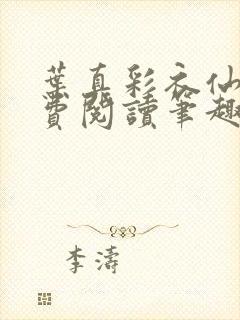 葉真彩衣仙
費閱讀筆趣
李濤